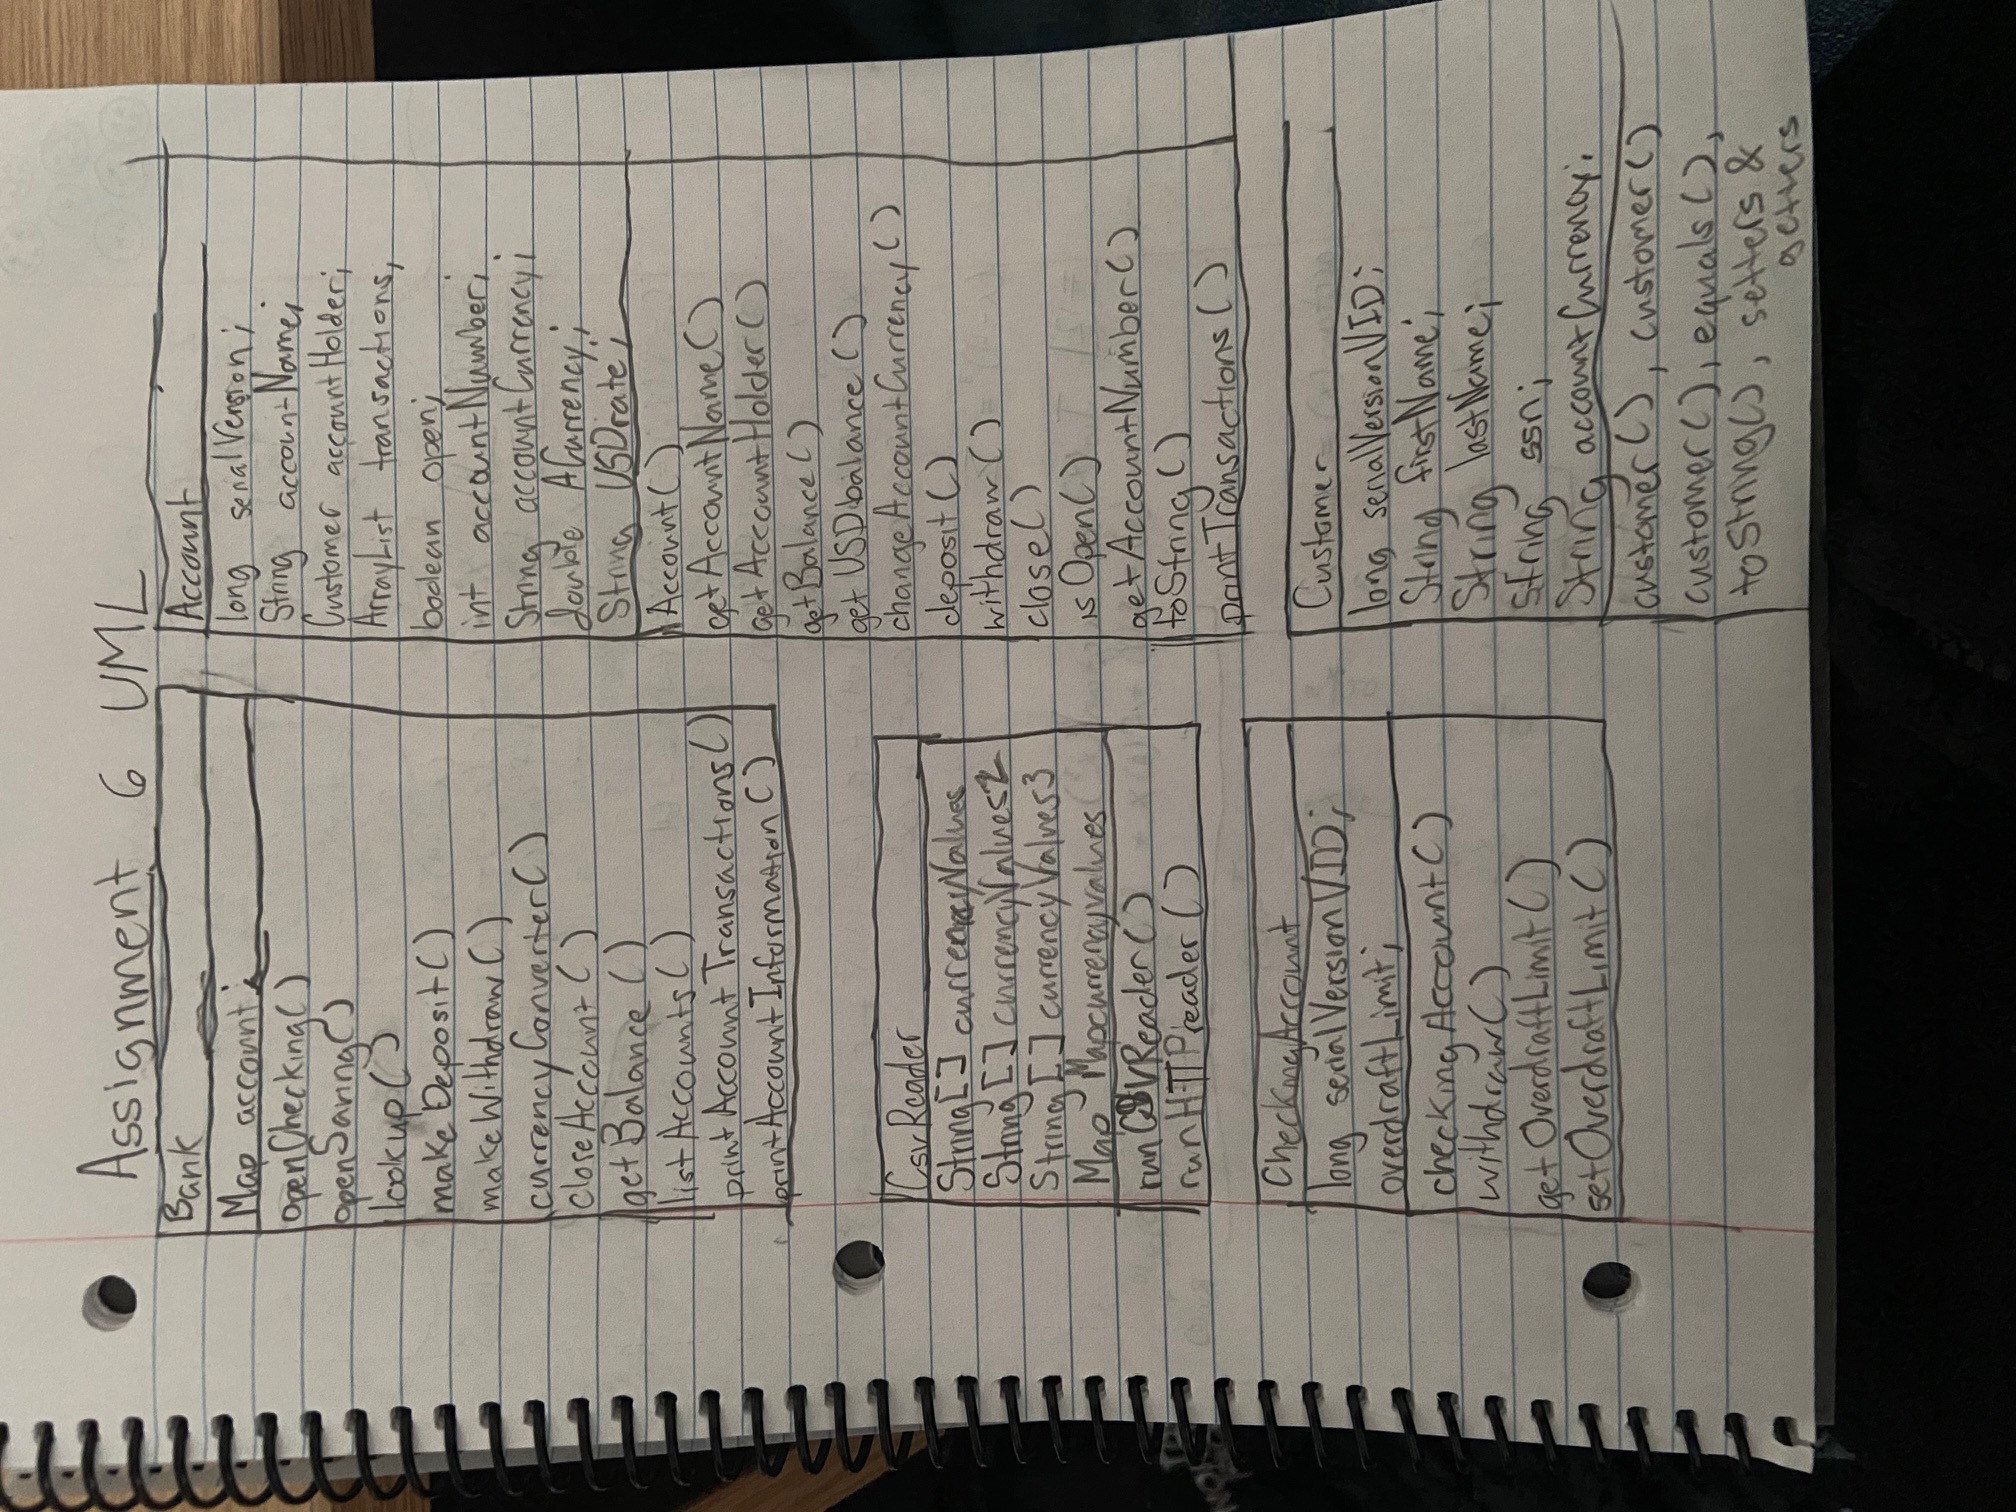 Assignment 6 UML
Bank
Map account;
openChecking()
openSaving()
lookup()
makeDeposit()
makeWithdraw()
currencyConverter()
closeAccount()
getBalance()
listAccounts()
printAccountTransactions()
printAccountInformation()
CsvReader
String[] currencyValues
String[] currencyValues2
String[] currencyValues3
Map Mapcurrencyvalues
runCSVReader()
runHTTPreader()
CheckingAccount
long serialVersionVID;
overdraftLimit;
checkingAccount()
withdraw()
getOverdraftLimit()
setOverdraftLimit()
Account
long serialVersion;
String accountName;
Customer accountHolder;
ArrayList transactions;
boolean open;
int accountNumber;
String accountCurrency;
double ACurrency;
String USDrate;
Account()
getAccountName()
getAccountHolder()
getBalance()
getUSDbalance()
changeAccountCurrency()
deposit()
withdraw()
close()
isOpen()
getAccountNumber()
toString()
printTransactions()
Customer
long serialVersionVID;
String firstName;
String lastName;
String ssn;
String accountCurrency;
customer(), customer()
customer(), equals(),
toString(), setters &
getters